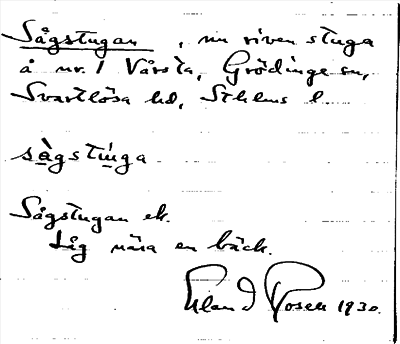 Sågstugan, nu riven stuga
å nr. 1 Vårsta, Grödinge sn,
Svartlösa hd, Sthlms l
sàgstúga
Sågstugan ek.
Låg nära en bäck.
Erland Rosell 1930.